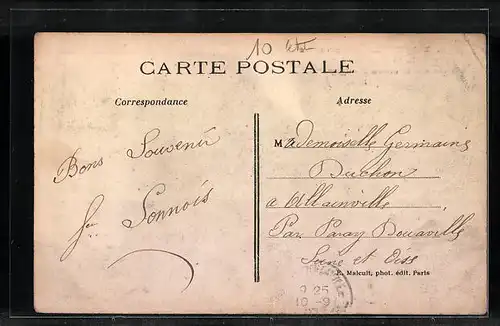 10
CARTE POSTALE
Correspondance
Adresse
Bons Souvenir
Sonnois
Mademoiselle Germaine
Duchon
a Allainville
Par Paray Douaville
Seine et Oise
E. Malcuit, phot. édit. Paris
9 25
10 -9